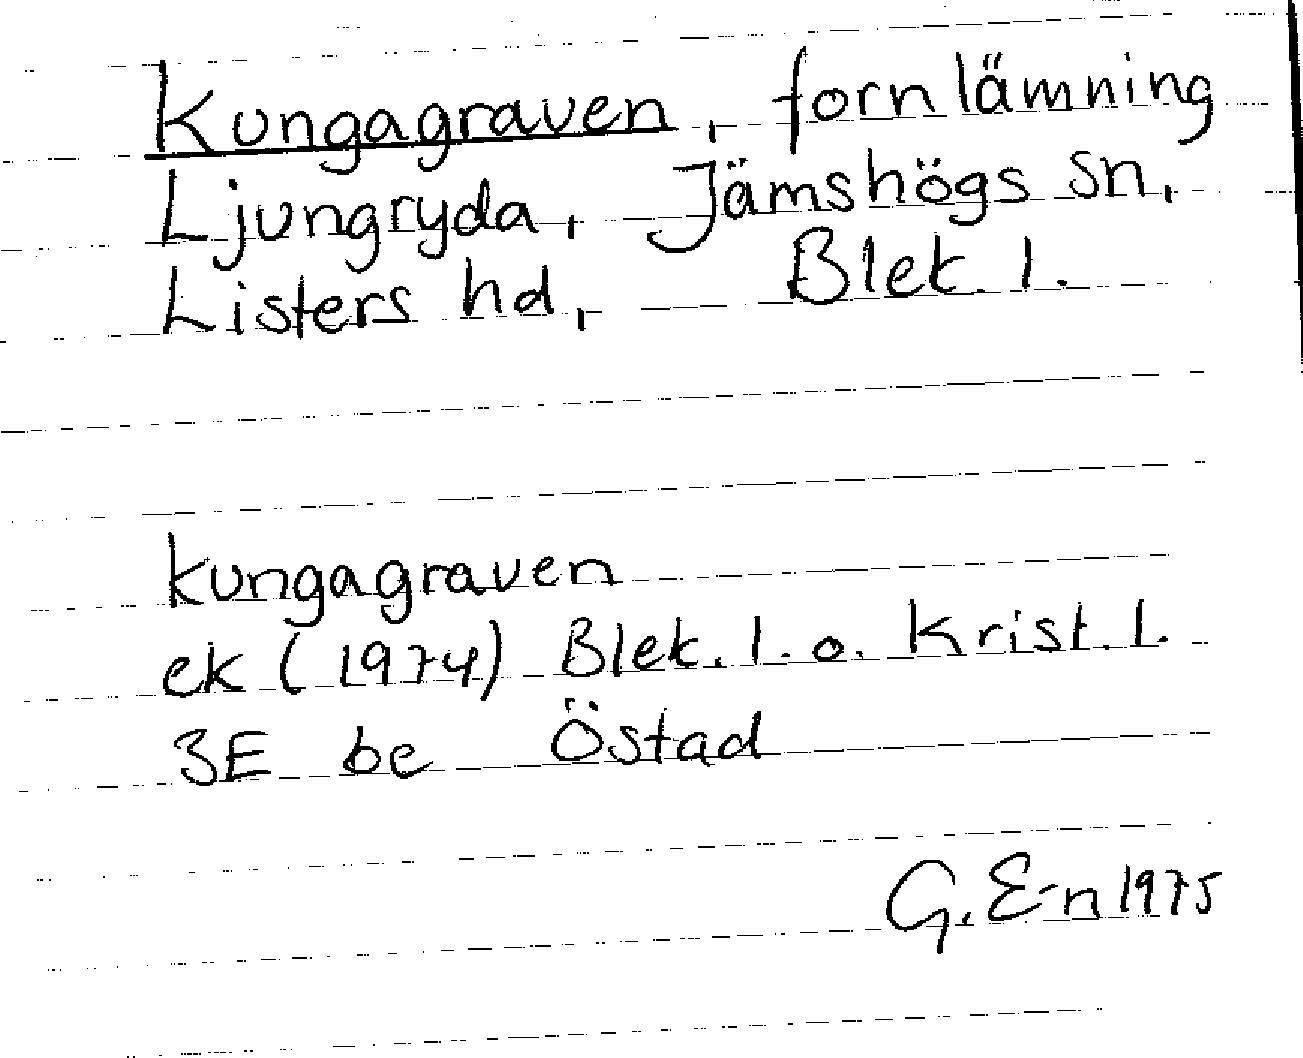 Kungagraven, fornlämning
Ljungryda, Jämshögs sn,
Listers hd, Blek. l.
kungagraven
ek (1974) Blek. l. o. Krist. l.
3E be Östad
G. E-n 1975